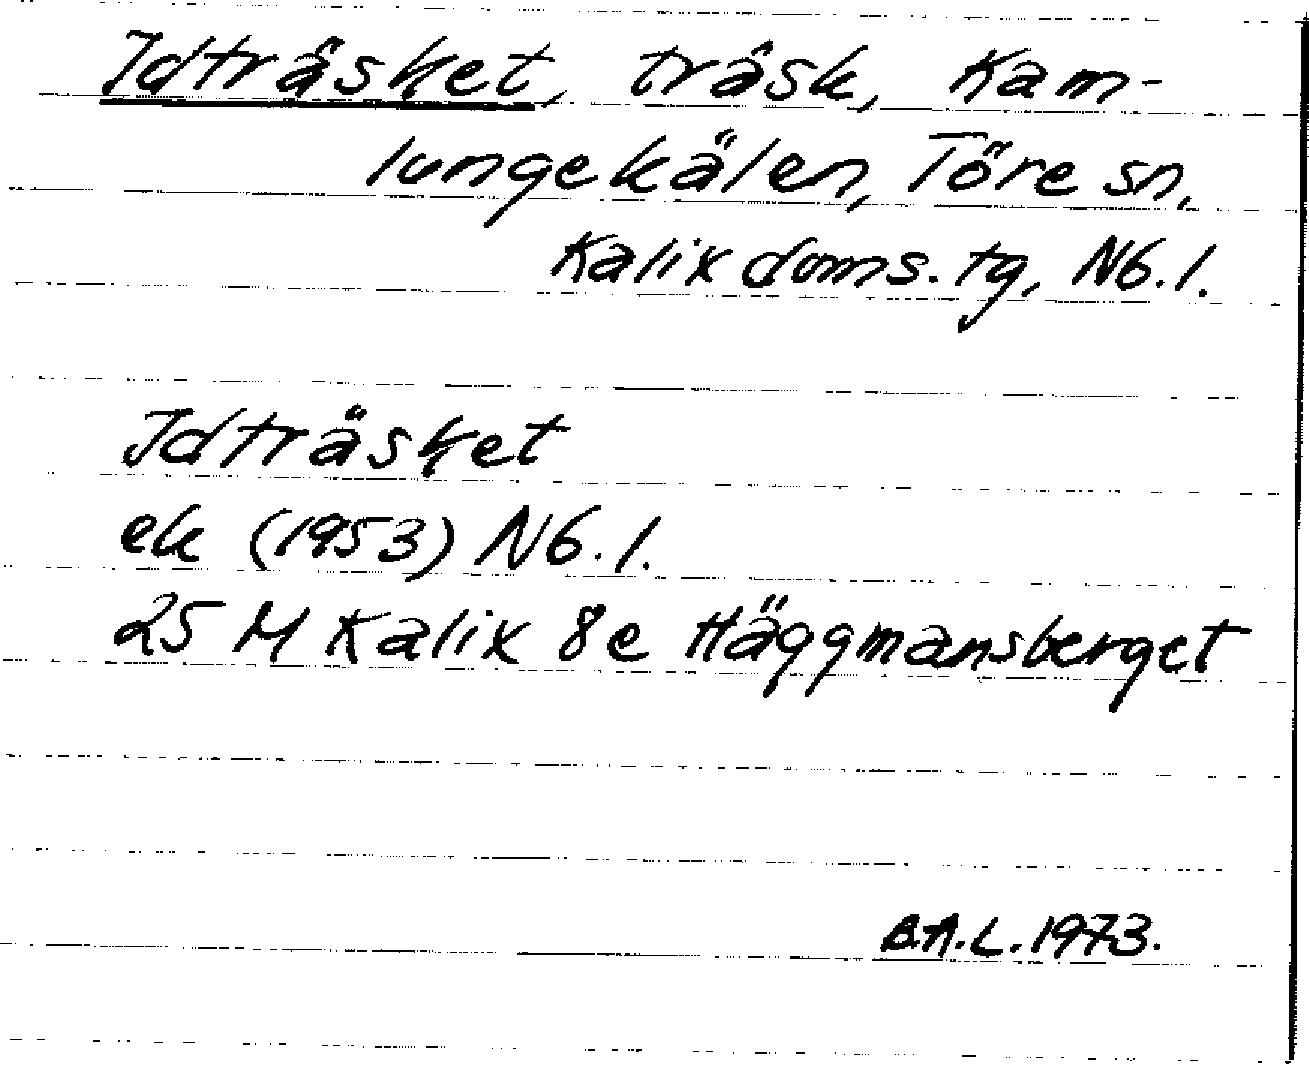 Idträsket, träsk, Kam-
lungekälen, Töre sn,
Kalix doms. tg, Nb. l.
Idträsket
ek (1953) Nb. l.
25 M Kalix 8e Häggmansberget
B.A.L. 1973.